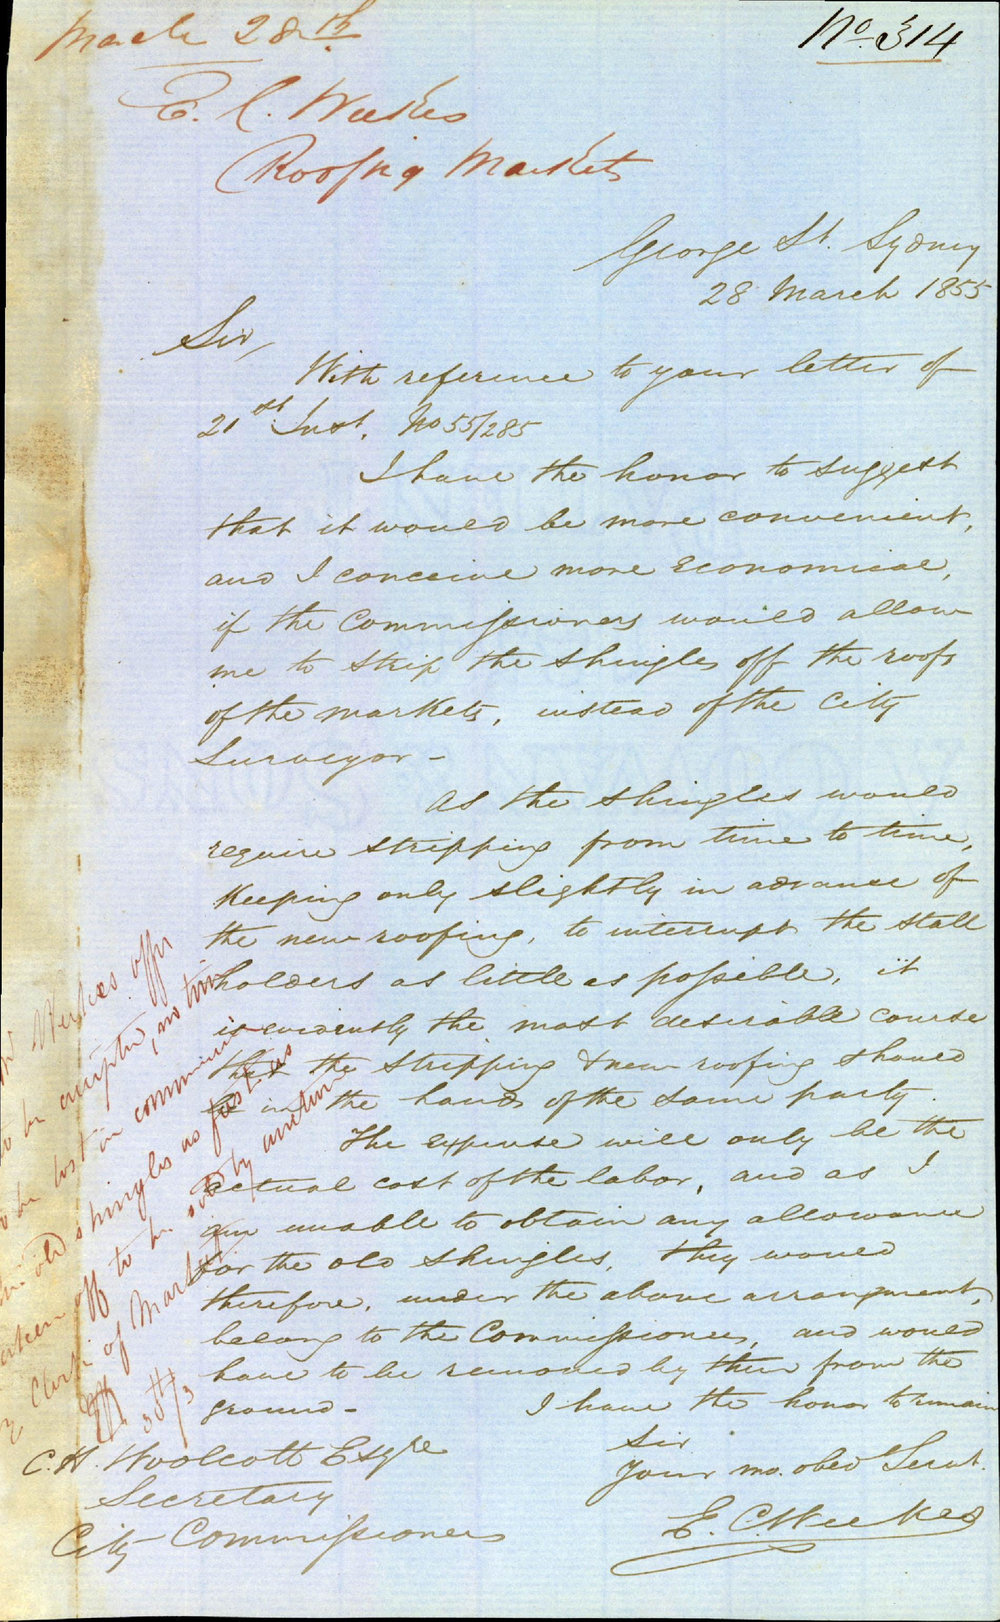 March 28th
No. 314
E. C. Weekes
Roofing Markets
George St. Sydney
28 March 1855
Sir,
With reference to your letter of
21st Inst. No 55/285
I have the honor to suggest
that it would be more convenient,
and I conceive more economical,
if the Commissioners would allow
me to strip the shingles off the roofs
of the markets, instead of the City
Surveyor -
As the shingles would
require stripping from time to time,
keeping only slightly in advance of
the new roofing, to interrupt the stall
holders as little as possible, it
is evidently the most desirable course
that the stripping & new roofing should
be in the hands of the same party.
The expense will only be the
actual cost of the labor, and as I
am unable to obtain any allowance
for the old shingles, they would
therefore, under the above arrangement,
belong to the Commissioners, and would
have to be removed by them from the
ground -
I have the honor to remain
Sir
Your mo. obed Servt.
E. C. Weekes
C. H. Woolcott Esqre
Secretary
City Commissioners
Weekes offer
to be accepted, no time
to be lost in
old shingles as fast as
taken off to be sold by auction
Clerk of Markets
30th/3